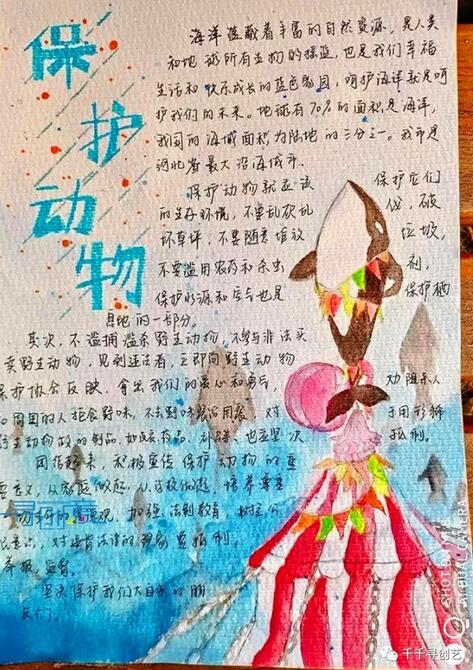 保护动物
海洋蕴藏着丰富的自然资源，是人类
和地球所有生物的摇篮，也是我们幸福
生活和快乐成长的蓝色家园，呵护海洋就是呵
护我们的未来。地球有70%的面积是海洋，
我国的海域面积为陆地的三分之一。我市是
河北省最大沿海城市.
保护动物就应该 保护它们
的生存环境，不要乱砍乱 伐，破
坏草坪，不要随意堆放 垃圾，
不要滥用农药和杀虫 剂，
保护水源和空气也是 保护栖
息地的一部分。
其次，不滥捕滥杀野生动物，不参与非法买
卖野生动物，见到违法者，立即向野生动物
保护协会反映、拿出我们的爱心和勇气， 劝阻亲人
和周围的人拒食野味，不去野味 对 于用珍稀
野生动物做的制品，如 药品、补 也应坚决 抵制。
积极宣传保护动物的重
要意义，从家庭做起，从 做起，培养尊重
加强法制教育，树立公
民意识，对违背法律的现象要抵制，
举报，监督。
坚决保护我们大自然的朋
友们。
千千寻创艺